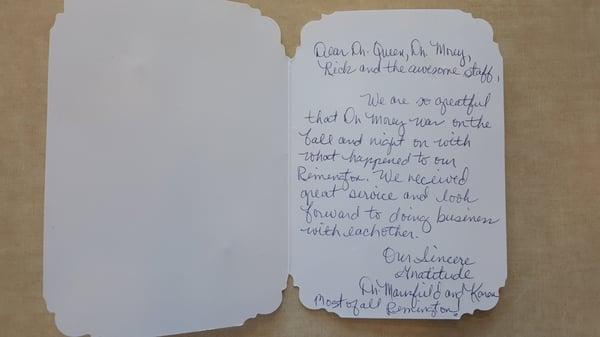 Dear Dr. Queen, Dr. Morey,
Rick and the awesome staff,
We are so greatful
that Dr. Morey was on the
ball and night on with
what happened to our
Remington. We received
great service and look
forward to doing business
with eachother.
Our Sincere
Gratitude
Dr. Mansfield and Karen
Most of all Remington!